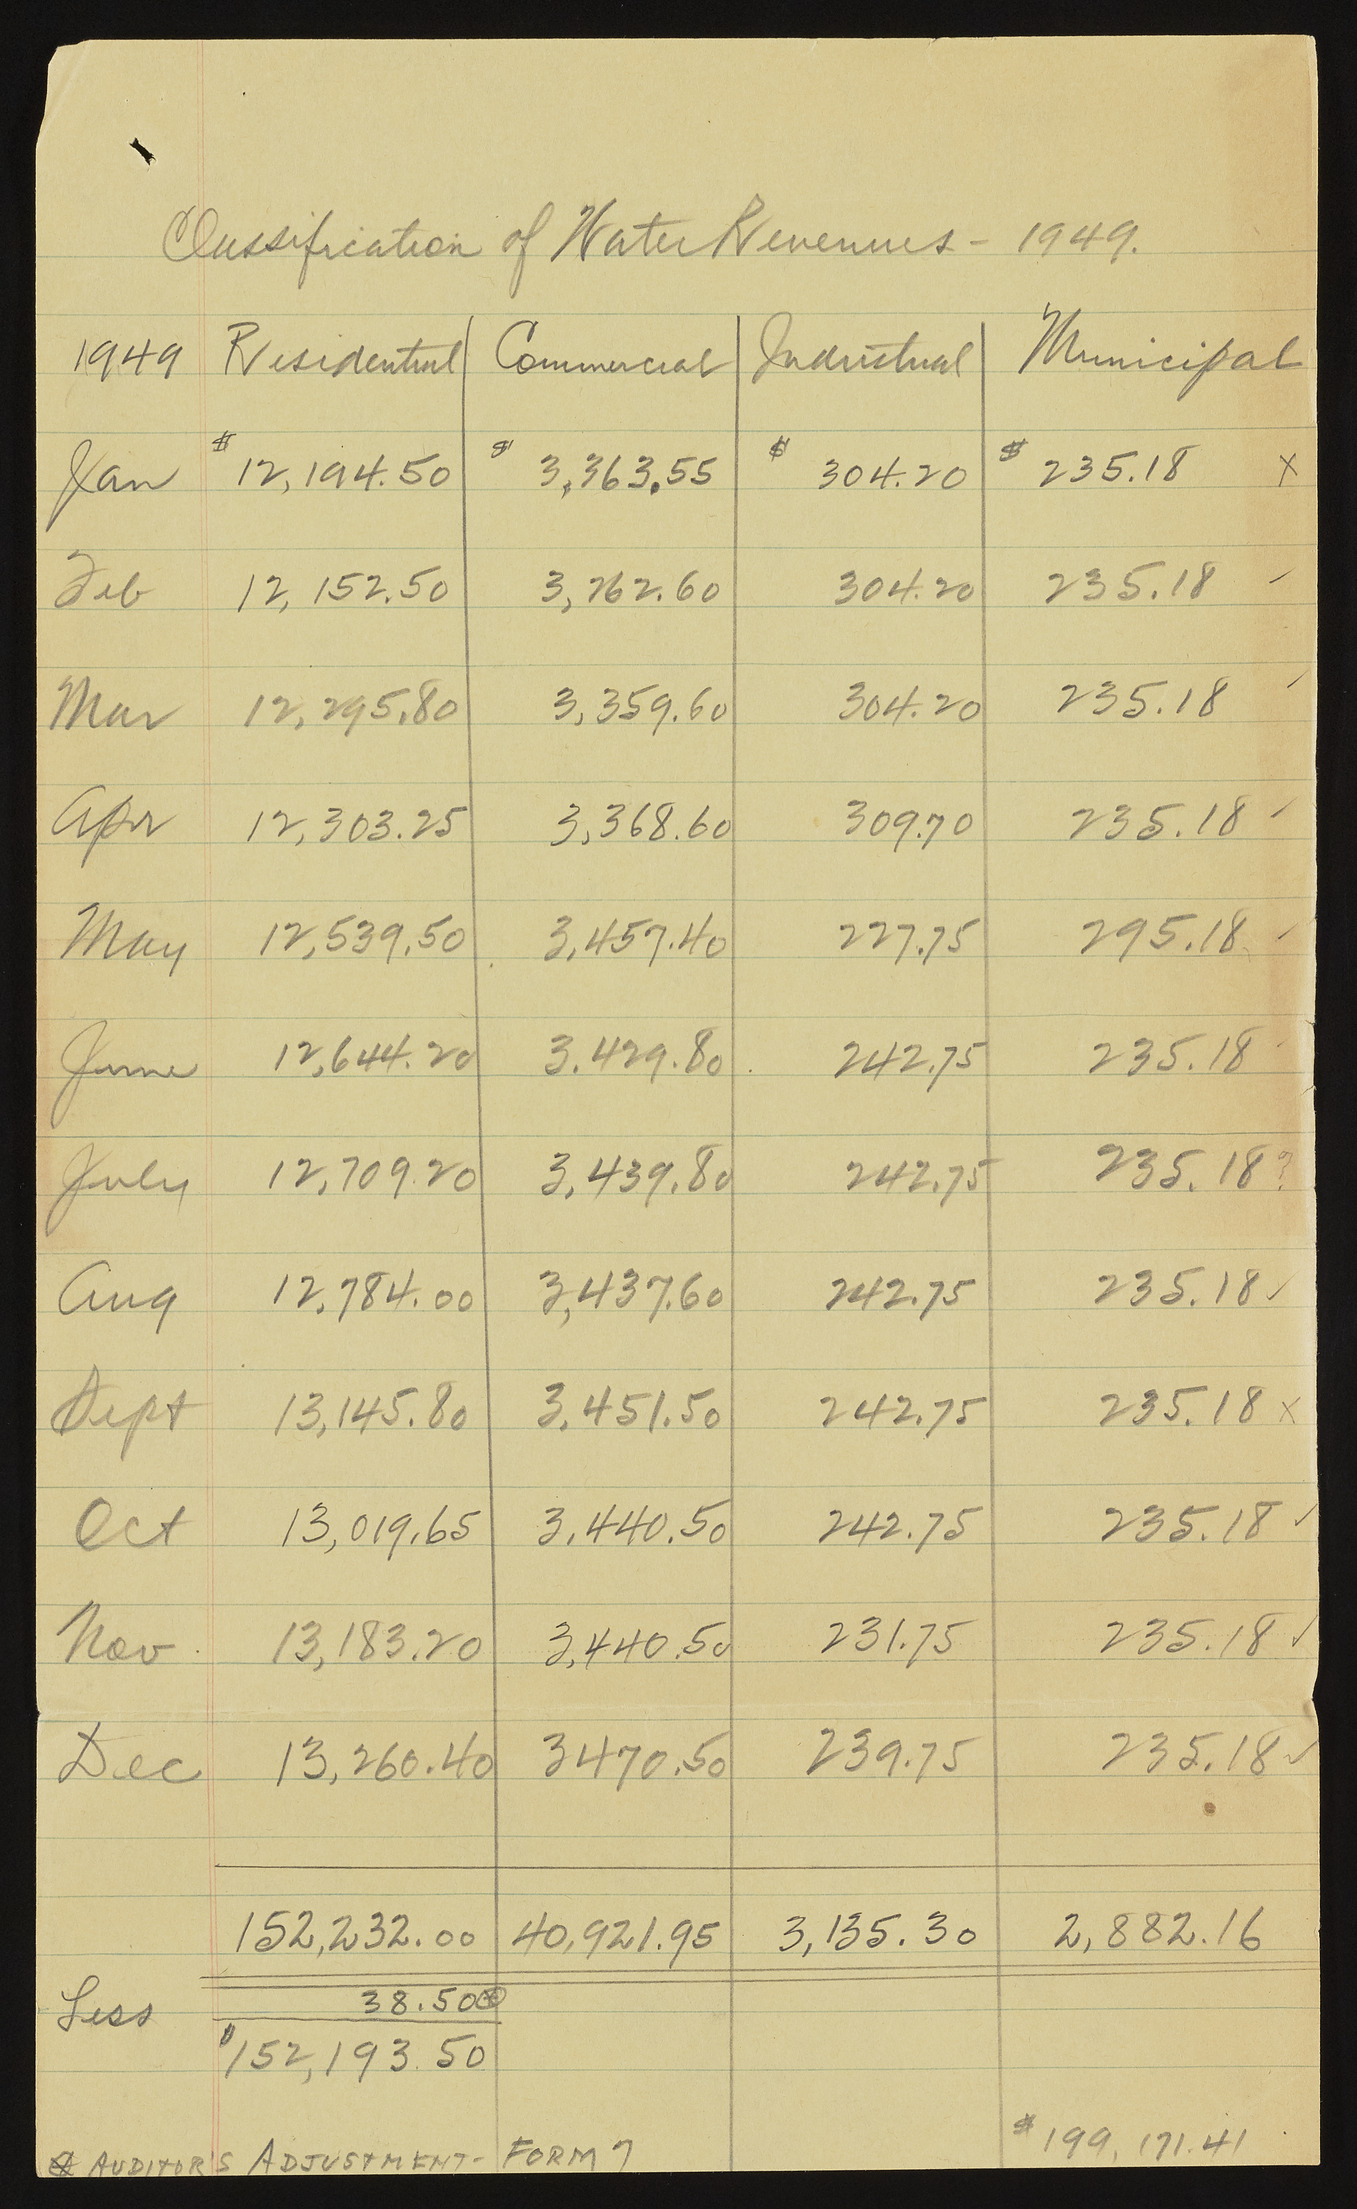 Classification of Water Revenues - 1949.
1949 Residential Commercial Industrial Municipal
Jan $ 12,194.50 $ 3,363.55 $ 304.20 $ 235.18 x
Feb 12,152.50 3,262.60 304.20 235.18 ✓
Mar 12,295.80 3,359.60 304.20 235.18 ✓
Apr 12,303.25 3,368.60 309.70 235.18 ✓
May 12,539.50 3,457.40 227.75 295.18 ✓
June 12,644.20 3.429.80 242.75 235.18 ✓
July 12,709.20 3,439.80 242.75 235.18 ?
Aug 12,784.00 3,437.60 242.75 235.18 ✓
Sept 13,145.80 3,451.50 242.75 235.18 x
Oct 13,019.65 3,440.50 242.75 235.18 ✓
Nov 13,183.20 3,440.50 231.75 235.18 ✓
Dec 13,260.40 3470.50 239.75 235.18 ✓
152,232.00 40,921.95 3,135.30 2,882.16
Less 38.50 ⊗
$152,193.50
$199,171.41
⊗ AUDITOR'S ADJUSTMENT - FORM 7